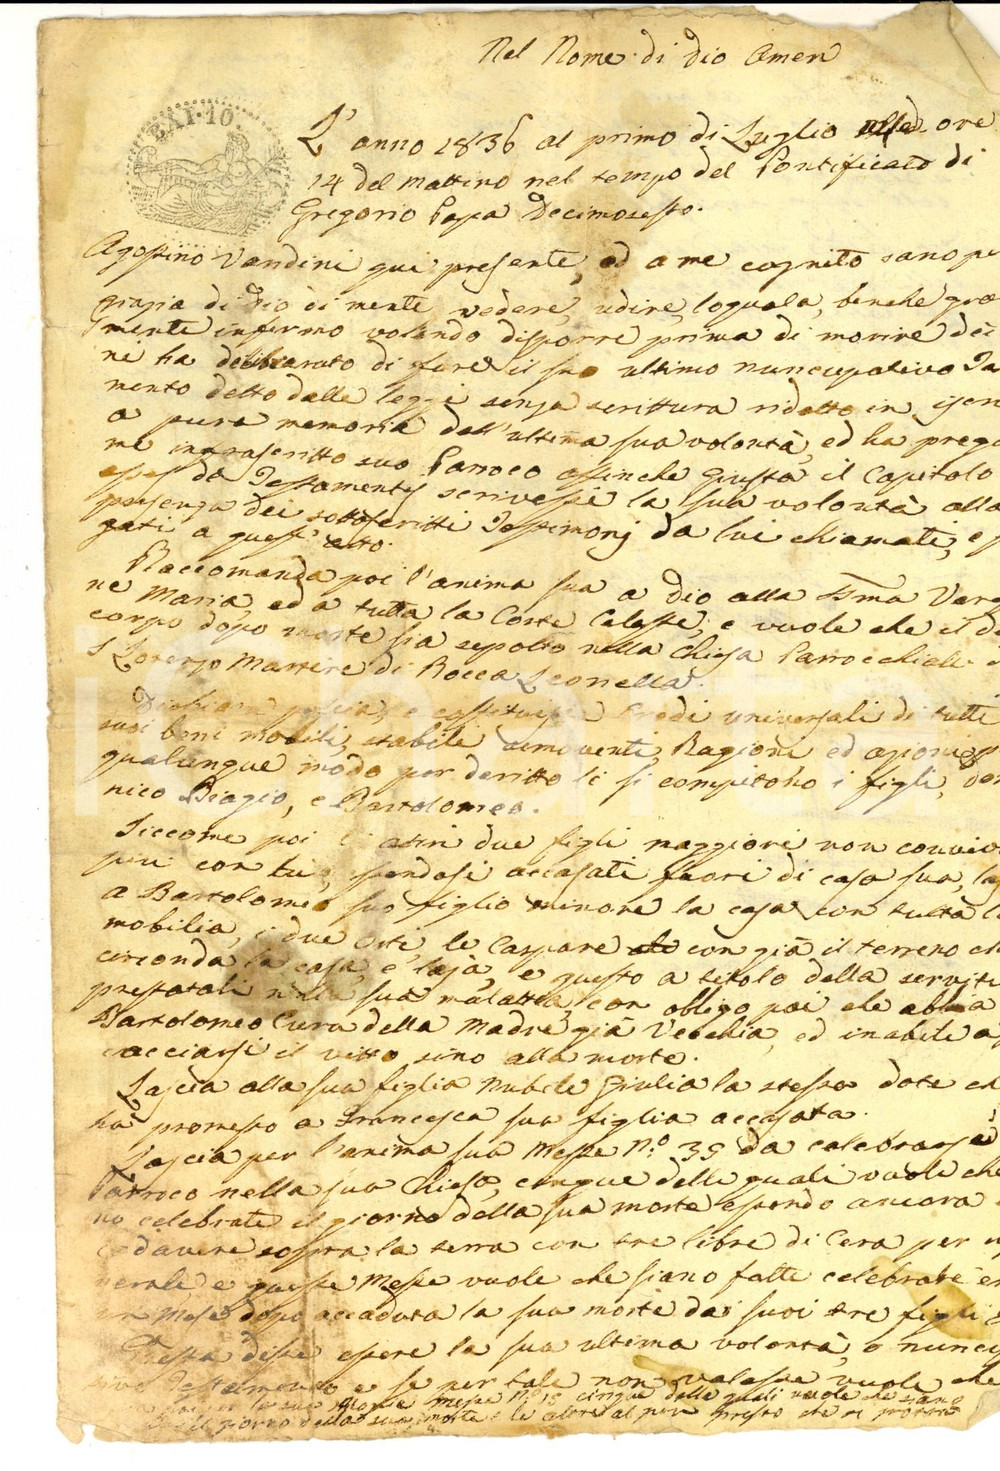 Nel Nome di Dio Amen
BAI·10·
L'anno 1836 al primo di Luglio ore
14 del Mattino nel tempo del Pontificato di
Gregorio Papa Decimosesto.
Agostino Vandini qui presente, ed a me cognito sano per
grazia di Dio di mente, vedere, udire, loquala, benche gra
mente infermo volendo disporre prima di morire de
ni ha deliberato di fare il suo ultimo nuncupativo Ta
mento detto dalle leggi senza scrittura ridotto in
a pura memoria dell'ultima sua volontà, ed ha prega
me infrascritto suo Parroco affinche giusta il Capitolo
da Testamentis scrivesse la sua volontà alla
presenza dei sottoscritti Testimonj da lui chiamati, e
gati a quest'atto.
Raccomanda poi l'anima sua a Dio alla Sma Verg
ne Maria, ed a tutta la Corte Celeste, e vuole che il d
corpo dopo morte sia sepolto nella Chiesa Parrocchiale
S Lorenzo Martire di Rocca Leonella.
Dichiara poscia, e costituisce Eredi universali di tutti
suoi beni mobili, stabili semoventi, Ragioni ed azioni
qualunque modo per deritto li si compitono i figli, Dom
nico Biagio, e Bartolomeo.
Siccome poi li due figli maggiori non convivo
piu con lui, essendosi accasati fuori di casa sua, la
a Bartolomeo suo figlio minore la casa con tutta l
mobilia, i due Orti, le Caspare con già il terreno ch
circonda la casa, e l'aja, e questo a titolo della servit
prestatali nella sua malattia, con obligo poi che abbia
Bartolomeo Cura della Madre già Vecchia, ed inabile a
cacciarsi il vitto sino alla morte.
Lascia alla sua figlia Nubile Giulia la stessa dote ch
ha promesso a Francesca sua figlia accasata.
Lascia per l'anima sua Messe N.o 35 da celebrarsi
Parroco nella sua Chiesa, cinque delle quali vuole che
no celebrate il giorno della sua morte essendo ancora
Cadavere sopra la terra con tre libre di Cera per
nerale e queste Messe vuole che siano fatte celebrare
Mese dopo accaduta la sua morte dai suoi tre figli
Questa disse essere la sua ultima volontà, o nuncu
tivo Testamento e se per tale non valesse vuole che
messe N.o 15 cinque delle quali vuole che siano
il giorno della sua morte e le altre al più presto che si potrà